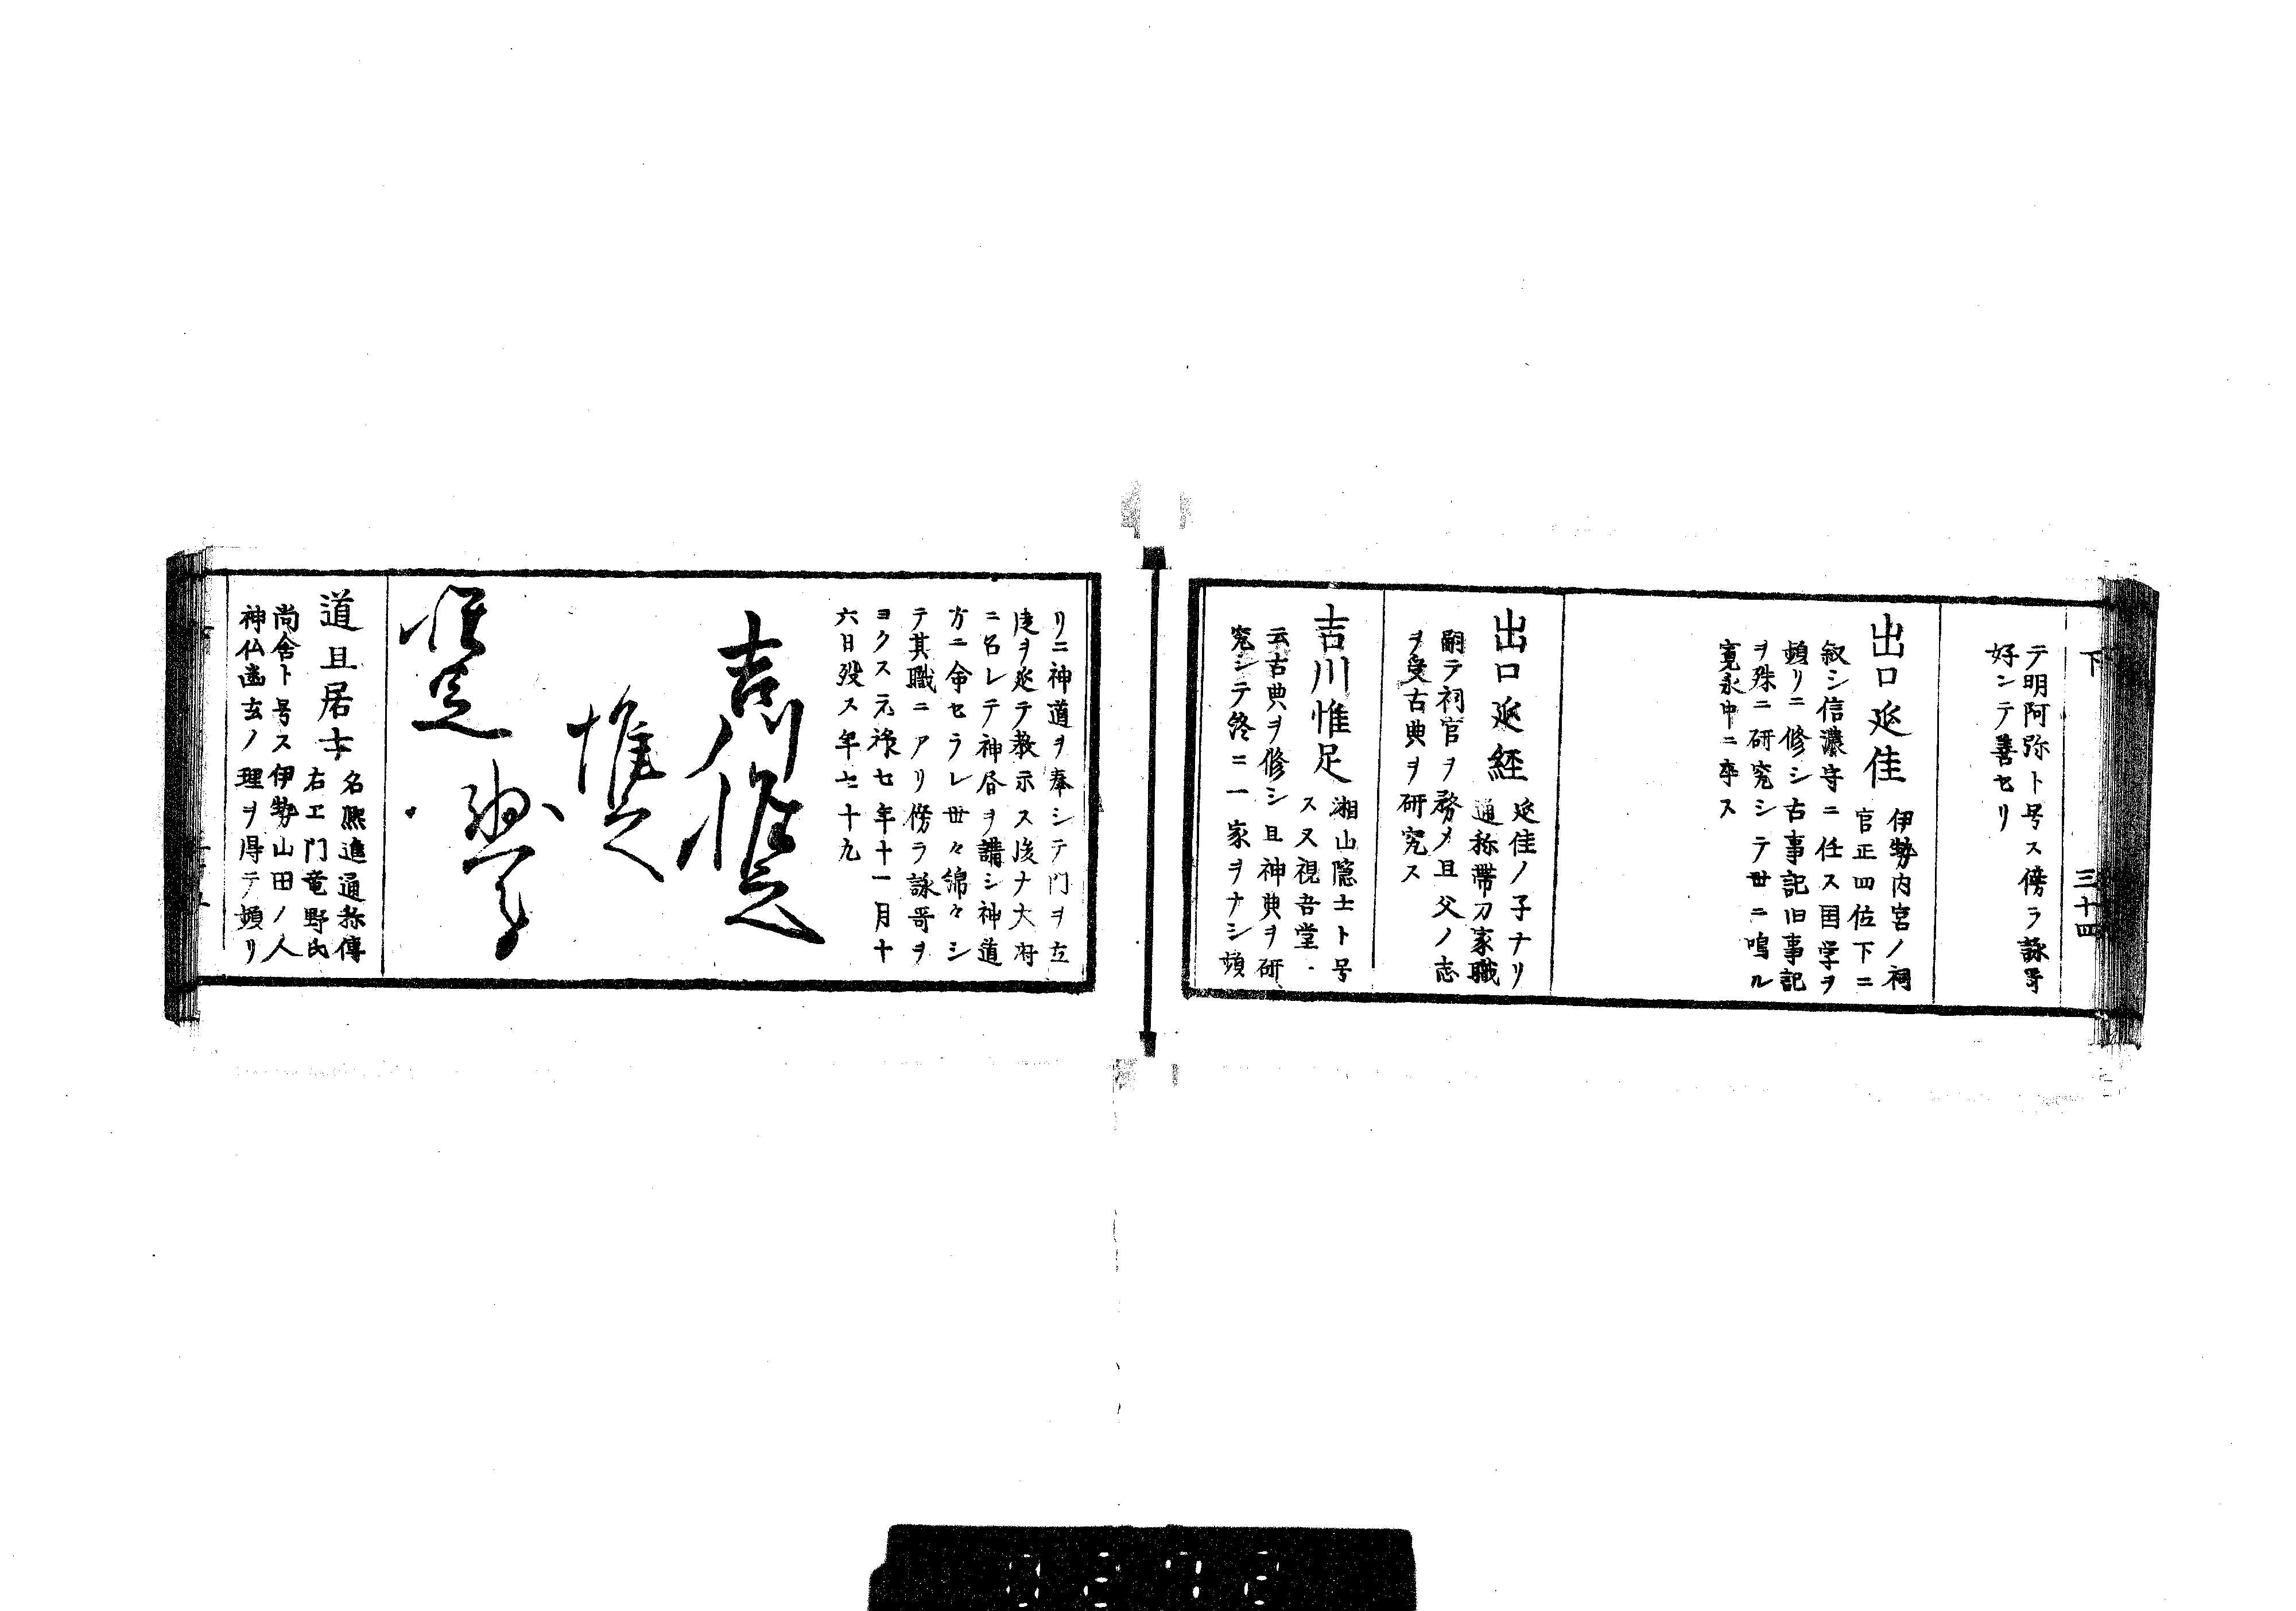 下 三十四
テ明阿弥ト号ス傍ラ詠哥
好ンテ善セリ
出口延佳
伊勢内宮ノ祠
官正四位下ニ
叙シ信濃守ニ任ス国学ヲ
頻リニ修シ古事記旧事記
ヲ殊ニ研究シテ世ニ鳴ル
寛永中ニ卒ス
出口延経
延佳ノ子ナリ
通称帯刀家職
嗣テ祠官ヲ務メ且父ノ志
ヲ受古典ヲ研究ス
吉川惟足
湘山隠士ト号
ス又視吾堂
云古典ヲ修シ且神典ヲ研
究シテ終ニ一家ヲナシ頻
リニ神道ヲ奉シテ門ヲ立
徒ヲ延テ教示ス後ナ大府
ニ召レテ神昏ヲ講シ神道
方ニ命セラレ世々綿々シ
テ其職ニアリ傍ラ詠哥ヲ
ヨクス元禄七年十一月十
六日歿ス年七十九
吉川惟足
惟足
惟足
道且居士
名熈進通称傳
右エ門竜野氏
尚舎ト号ス伊勢山田ノ人
神仏幽玄ノ理ヲ得テ頻リ